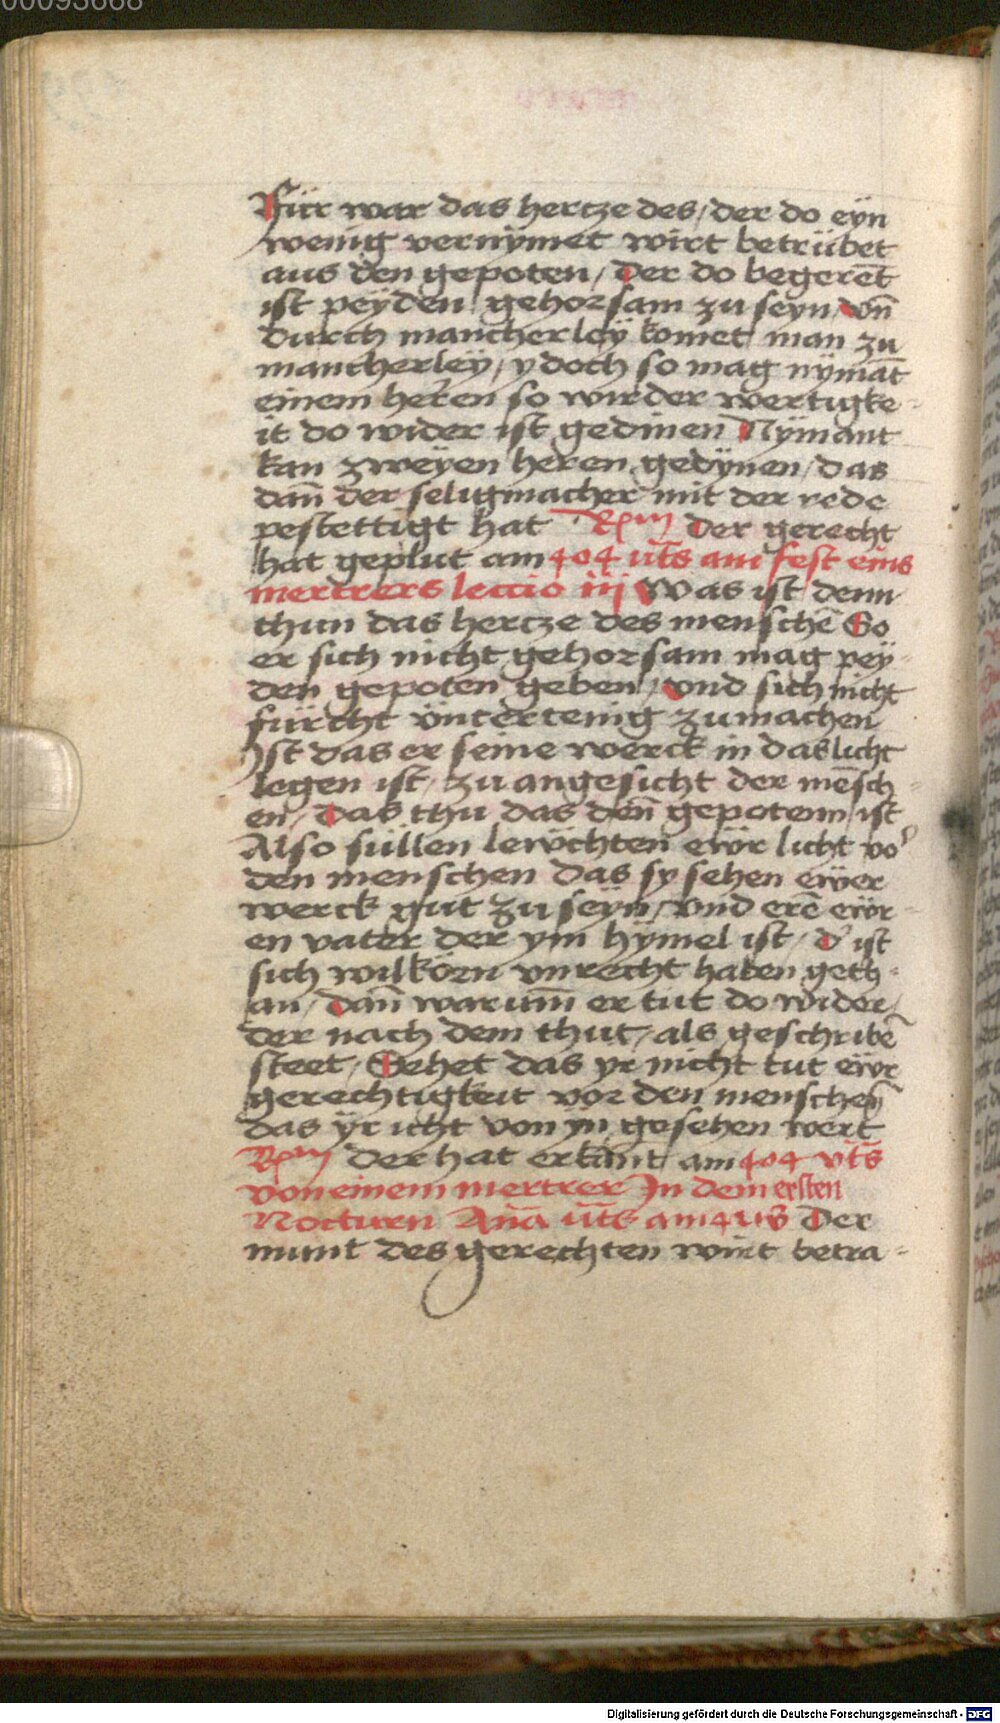 00093668
Für war das hertze des / der do eyn
wenig vernÿmet wirt betrübet
aus den gepoten / Der do begerēt
ist peyden gehorsam zu seyn / Vn̄
durch mancherleÿ komet man zu
mancherleÿ / ydoch so mag nÿmāt
einem heren so wirder wertigke-
it do wider ist gedinen Nÿmant
kan zweyen heren gedÿnen / das
dan̄ der seligmacher mit der rede
pestettigt hat Rpm Der gerecht
hat geplut am 404 vt̄s am fest eins
mertrers leccio iij Was ist denn
thun das hertze des menschē So
er sich nicht gehorsam mag pey-
den gepoten geben / Vnd sich nicht
fürcht vntertenig zu machen
Ist das er seine werck in das licht
legen ist / zu angesicht der mēsch-
en / Das thu das den̄ gepotenn ist
Also süllen lewchten ewr licht vo
den menschen das sy sehen ewer
werck gut zu seyn / vnd erē ewr-
en vater der ym hÿmel ist / D' ist
sich wilkörn vnrecht haben geth-
an / Dan̄ warum̄ er tut do wider
der nach dem thut / als geschribē
steet / Sehet das yr nicht tut ewr
gerechtigkeit vor den menschen
das ÿr icht von yn gesehen wert
Rpm Der hat erkānt am 404 vt̄s
von einem mertrer In dem ersten
Nocturn Anā vt̄s am Der
munt des gerechten wirt betra-
Digitalisierung gefördert durch die Deutsche Forschungsgemeinschaft - DFG